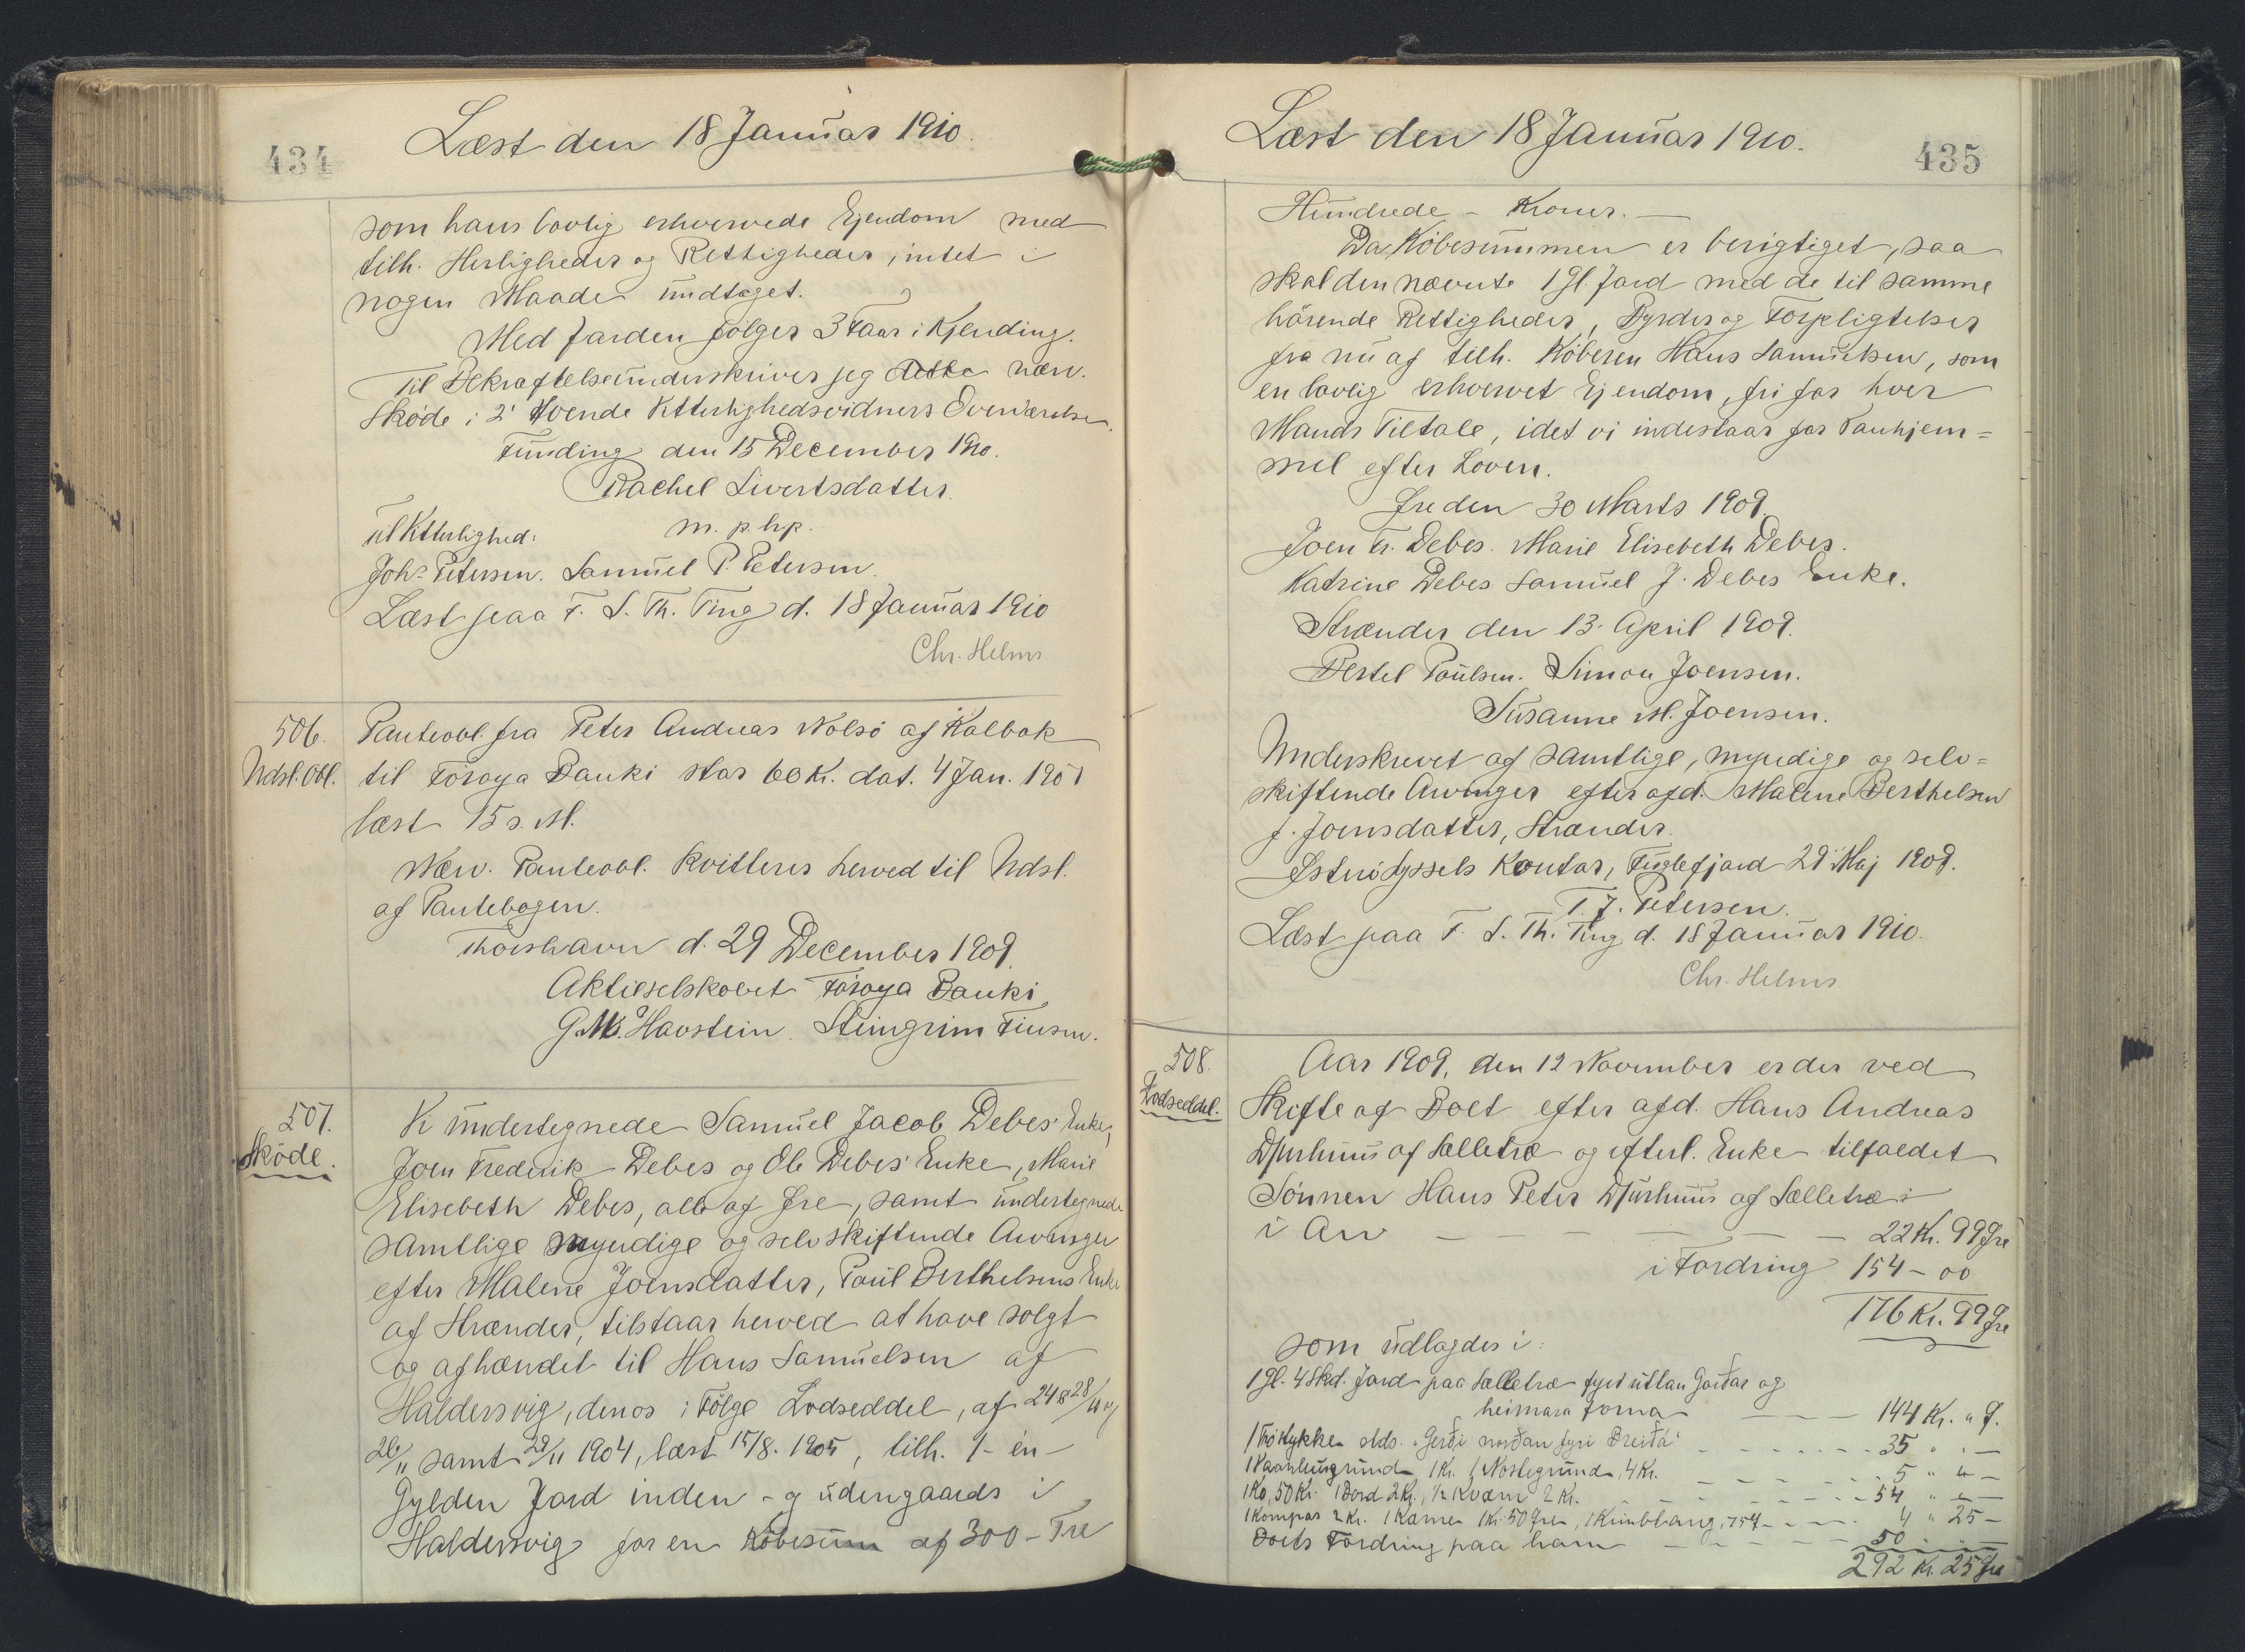 434
Læst den 18 Januar 1910.
som hans lovlig erhvervede Ejendom med
tilh. Herligheder og Rettigheder, intet i
nogen Maade undtaget.
Med Jorden følger 3 Faar i Kjending.
Til Bekræftelse underskriver jeg dette næv.
Skøde i 2 tvende Vitterlighedsvidners Overværelse.
Funding den 15 December 1910.
Rachel Sivertsdatter.
m. p. hp.
Til Vitterlighed:
Johs Petersen. Samuel P. Petersen.
Læst paa F. S. Th. Ting d. 18 Januar 1910
Chr. Helms
506.
Udsl. Obl.
Panteobl. fra Peter Andreas Nolsø af Kalbak
til Föroya Banki stor 60 Kr. dat. 4 Jan. 1908
læst 15 s. M.
Næv. Panteobl. kvitteres herved til Udsl.
af Pantebogen.
Thorshavn d. 29 December 1909.
Aktieselskabet Föroya Banki
G. M. Havstein. Steingrim Finsen.
507.
Skøde.
Vi undertegnede Samuel Jacob Debes' Enke,
Joen Frederik Debes og Ole Debes' Enke, Marie
Elisebeth Debes, alle af Øre, samt undertegnede
samtlige myndige og selvskiftende Arvinger
efter Malene Joensdatter, Poul Berthelsens Enke
af Strænder, tilstaar herved at have solgt
og afhændet til Hans Samuelsen af
Haldersvig, den os i Følge Lodseddel, af 24 & 28/
26/11 samt 29/11 1904, læst 15/8. 1905, tilh. 1 - én -
Gylden Jord inden - og udengaards i
Haldersvig for en Købesum af 300 - Tre
Læst den 18 Januar 1910.
435
Hundrede - Kroner. -
Da Købesummen er berigtiget, saa
skal den nævnte 1 Gl. Jord med de til samme
hörende Rettigheder, Byrder og Forpligtelser
fra nu af tilh. Køberen Hans Samuelsen, som
en lovlig erhvervet Ejendom, fri for hver
Mands Tiltale, idet vi indestaar for Vanhjem=
mel efter Loven.
Øre den 30 Marts 1909.
Joen Fr. Debes. Marie Elisebeth Debes.
Katrine Debes Samuel J. Debes Enke.
Strænder den 13. April 1909.
Bertel Poulsen. Simon Joensen.
Susanne M. Joensen.
Underskrevet af samtlige, myndige og selv=
skiftende Arvinger efter afd. Malene Berthelsen
f. Joensdatter, Strænder.
Østerø Syssels Kontor, Fuglefjord 29 Maj 1909.
T. J. Petersen.
Læst paa F. S. Th. Ting d. 18 Januar 1910.
Chr. Helms
508.
Lodseddel.
Aar 1909, den 12 November er der ved
Skifte af Boet efter afd. Hans Andreas
Djurhuus af Selletræ og efterl. Enke tilfaldet
Sønnen Hans Peter Djurhuus af Selletræ i
i Arv - - - - 22 Kr. 99 Øre
i Fordring 154 - 00
176 Kr. 99 Øre
som udlagdes i:
1 Gl. 4 Skd. Jord paa Selletræ fyri uttan Garðar og
heimara Jorna - - - 144 Kr. " Ø.
1 Trøstykke sds. "Gerði norðan fyri Breiðá" - - - 35 " " -
1 Vaanhusgrund 1 Kr. 1 Nostegrund, 4 Kr. - - - 5 " " -
1 Ko, 50 Kr. 1 Bord 2 Kr., 1/2 Kværn 2 Kr. - - - 54 " " -
1 Kompas 2 Kr. 1 Kamer 1 Kr. 50 Øre, 1 , 75 Ø - - - 4 " 25 -
Boets Fordring paa ham - - - 50 " " -
292 Kr. 25 Øre